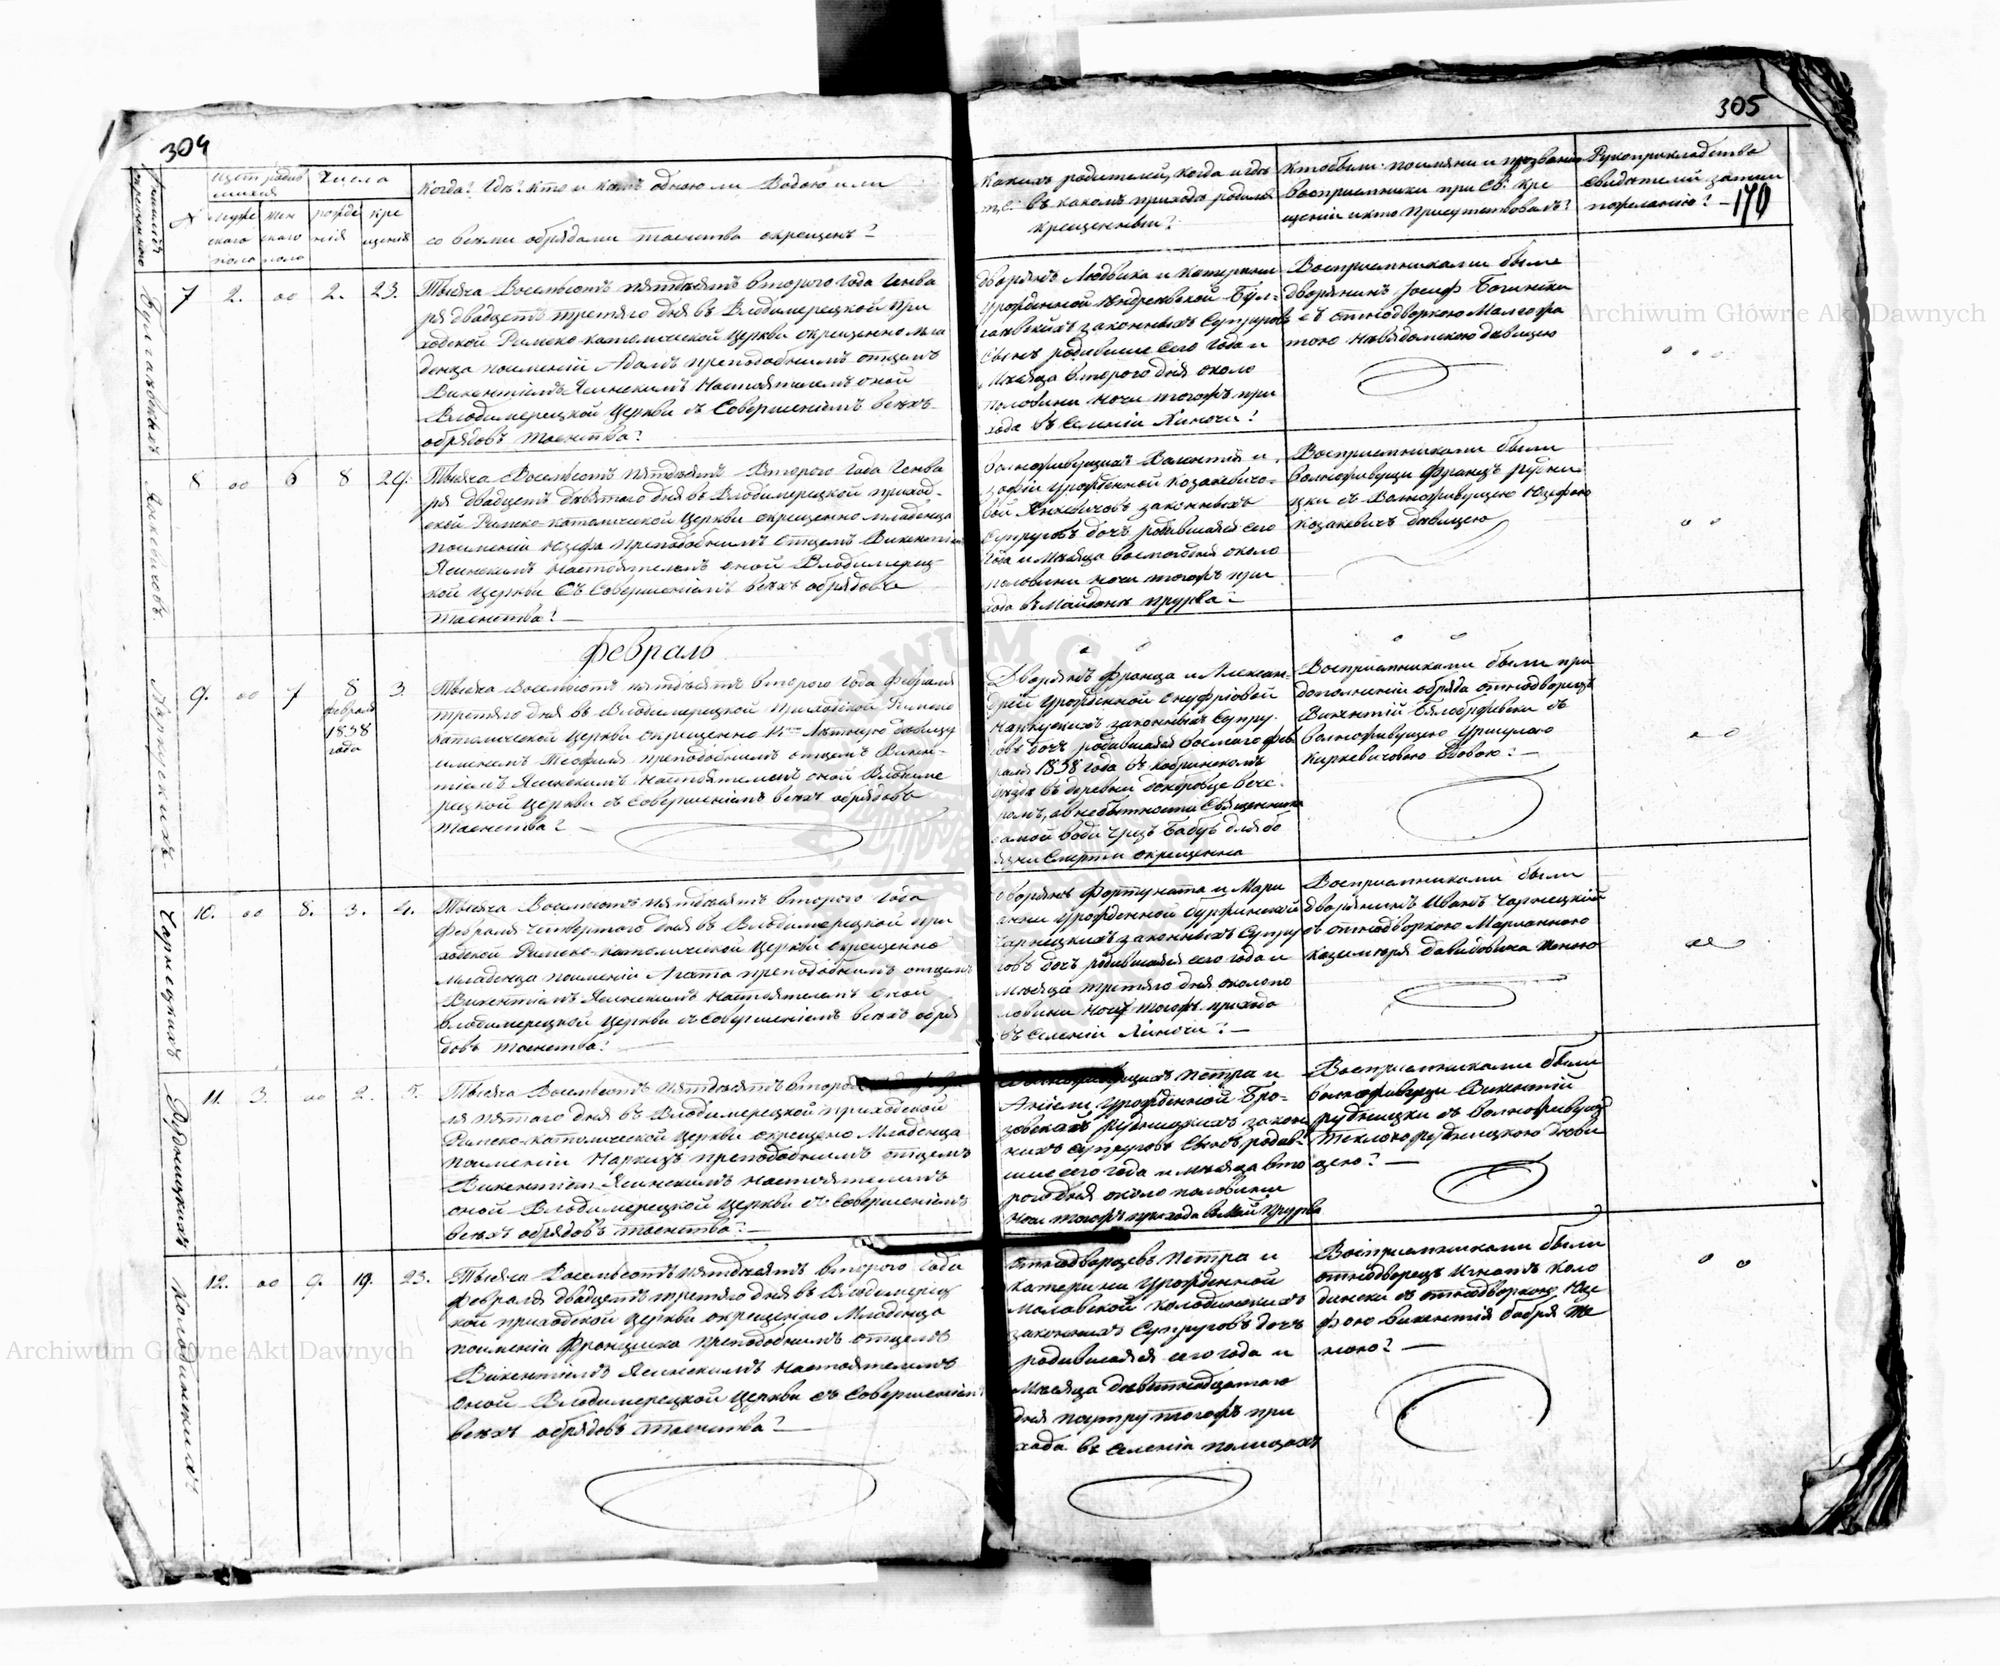 304
305
170
Числа
Когда? Где? Кто и кого одною ли Водою или
со всѣми обрядами таинства окрещенъ?
Какихъ родителей, когда и гдѣ
т.е. въ какомъ приходѣ родился
крещенный?
Кто были по имяни и прозванію
воспріемники при Св. Кре
щеніи и кто присутствовалъ?
Рукоприкладства
свидѣтелей
по желанію?
7 2. 2. 23.
Тысяча Восемьсотъ пятдесятъ втораго года Генва
ря двадцать третяго дня въ Влодимерецкой При
ходской Римско-католической Церкви окрещенно мла
денца по именій Адамъ преподобнимъ отцемъ
Викентіемъ Ясинскимъ Настоятелемъ оной
Влодимерецкой Церкви съ Совершеніемъ всѣхъ
обрядовъ таинства?
Дворянъ Людвика и Катерини
законныхъ Супруговъ
Сынъ родившіе сего года и
Мѣсяца втораго дня около
половини ночи тогожъ при
хода въ Селеніи Хиночи?
Воспріемниками были
дворянинъ Іосиф
съ отнодворкою Малгожа
тою девицею
8 6 8 29.
Тысяча Восемьсотъ пятдесятъ Втораго года Генва
ря двадцать девятаго дня въ Влодимерецкой приход-
ской Римско-католической Церкви окрещенно младенца
по именіи Юзефа преподобнимъ отцемъ Викентіем
Ясинскимъ Настоятелемъ оной Влодимерец-
кой Церкви Съ Совершеніемъ всѣхъ обрядовъ
таинства?
Волноживущихъ Валентія и
Зофіи урожденной Козакевичо-
вой Янкевичовъ законныхъ
Супруговъ дочъ родившаяся сего
года и мѣсяца восмого дня около
половини ночи тогожъ при
хода въ Майданѣ
Воспріемниками были
волноживущи Францъ Рудни
цки съ Волноживущею Юзефою
Козакевичъ девицею
Февраль
9. 7 8 3.
февраля
1838
года
Тысяча Восемьсотъ пятдесятъ втораго года Февраля
третяго дня въ Влодимерецкой Приходской Римско
католической Церкви окрещенно лѣтнюю девицу
именемъ Теофиля преподобнимъ отцемъ Викен-
тіемъ Ясинскимъ Настоятелемъ оной Влодиме
рецкой Церкви съ Совершеніемъ всѣхъ обрядовъ
таинства?
Дворянъ Франца и Алексан-
дріи урожденной Онуфріовой
Наркускихъ законныхъ Супру-
говъ дочъ родившаяся восмаго фев
раля 1838 года въ Кобринскомъ
уѣздѣ въ деревни вече-
ромъ, а в небытности Священника
самой води чрезъ Бабу для бо
язни Смерти окрещенна
Воспріемниками были при
дополненіи обряда отнодворецъ
Викентій съ
волноживущею Уршулею
Киркевичовою вдовою?
10. 8. 3. 4.
Тысяча Восемьсотъ пятдесятъ втораго года
Февраля четвертаго дня въ Влодимерецкой при
ходской Римско-католической Церкви окрещенно
младенца по именіи Агата преподобнимъ отцемъ
Викентіемъ Ясинскимъ Настоятелемъ оной
Влодимерецкой Церкви съ Совершеніемъ всѣхъ обря
довъ таинства?
Дворянъ Фортуната и Мари
анни урожденной
Чарнецкихъ законныхъ Супру
говъ дочъ родившаяся сего года и
мѣсяца третяго дня около по
ловини ночи тогожъ прихода
въ Селеніи Хиночи?
Воспріемниками были
дворянинъ Иванъ Чарнецкій
съ отнодворкою Марианною
Казимира Давидовича женою
11. 3. 2. 5.
Тысяча Восемьсотъ пятдесятъ втораго
ля пятаго дня въ Влодимерецкой приходской
Римско-католической Церкви окрещено Младенца
по именіи Наркизъ преподобнимъ отцемъ
Викентіем Ясинскимъ Настоятелемъ
оной Влодимерецкой Церкви съ Совершеніемъ
всѣхъ обрядовъ таинства?
Петра и
Анели урожденной Бро-
Рудницкихъ закон
нихъ супруговъ Сынъ родив-
шіе сего года и мѣсяца вто
раго дня около половини
ночи тогожъ прихода
Воспріемниками были
волноживущи Викентій
Рудницки съ волноживущею
Теклею Рудницкою деви
цею?
12. 9. 19. 23.
Тысяча Восемьсотъ пятдесятъ втораго года
Февраля двадцать третяго дня въ Влодимерец
кой приходской Церкви окрещенно Младенца
по именіи Францишка преподобнимъ отцемъ
Викентіемъ Ясинскимъ Настоятелемъ
оной Влодимерецкой Церкви съ Совершеніем
всѣхъ обрядовъ таинства?
Отнодворцевъ Петра и
Катерини урожденной
Малавской Колодинскихъ
законныхъ Супруговъ дочъ
родившаяся сего года и
Мѣсяца девятнадцатаго
дня поутру тогожъ при
хода въ Селеніи Полицахъ
Воспріемниками были
отнодворецъ Игнатъ Коло
дински съ отнодворкою Юзе
фою Викентія Бобря же
ною?
Янкевичовъ
Наркускихъ
Чарнецкихъ
Рудницкихъ
Колодинскихъ
Archiwum Główne Akt Dawnych
Archiwum Główne Akt Dawnych